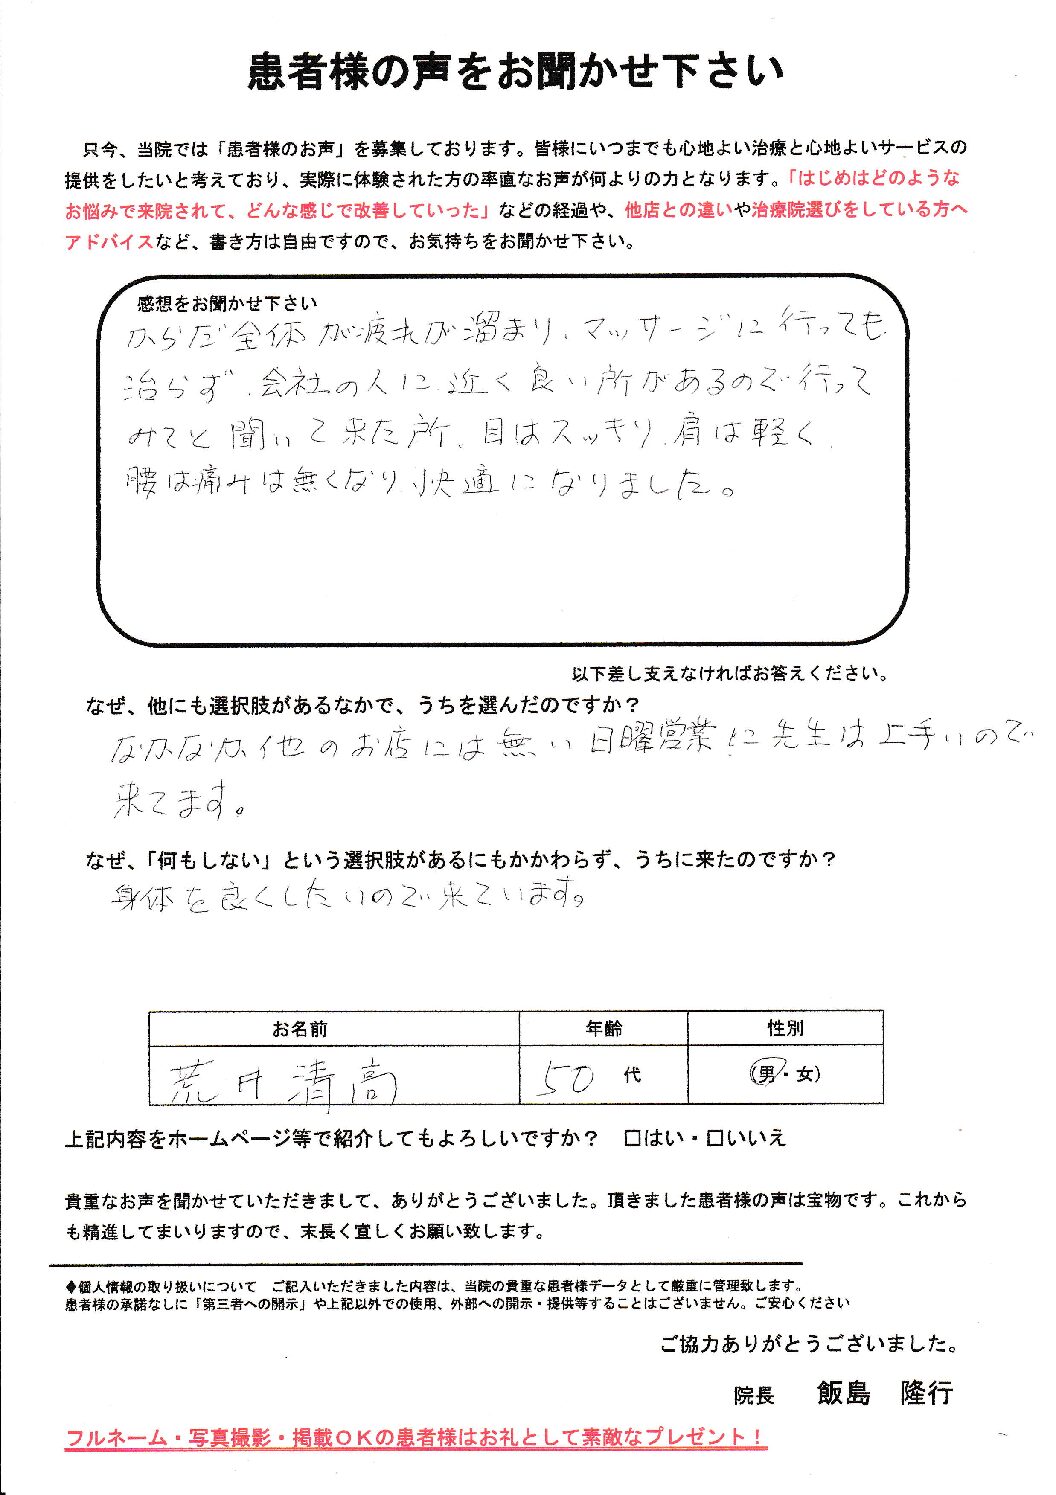 患者様の声をお聞かせ下さい
只今、当院では「患者様のお声」を募集しております。皆様にいつまでも心地よい治療と心地よいサービスの
提供をしたいと考えており、実際に体験された方の率直なお声が何よりの力となります。「はじめはどのような
お悩みで来院されて、どんな感じで改善していった」などの経過や、他店との違いや治療院選びをしている方へ
アドバイスなど、書き方は自由ですので、お気持ちをお聞かせ下さい。
感想をお聞かせ下さい
からだ全体が疲れが溜まり、マッサージに行っても
治らず、会社の人に近く良い所があるので行って
みてと聞いて来た所、目はスッキリ、肩は軽く、
腰は痛みは無くなり、快適になりました。
以下差し支えなければお答えください。
なぜ、他にも選択肢があるなかで、うちを選んだのですか？
なかなか他のお店には無い日曜営業に先生は上手いので
来てます。
なぜ、「何もしない」という選択肢があるにもかかわらず、うちに来たのですか？
身体を良くしたいので来ています。
お名前 年齢 性別
荒井清高 50 代 (男・女)
上記内容をホームページ等で紹介してもよろしいですか？ □はい・□いいえ
貴重なお声を聞かせていただきまして、ありがとうございました。頂きました患者様の声は宝物です。これから
も精進してまいりますので、末長く宜しくお願い致します。
◆個人情報の取り扱いについて ご記入いただきました内容は、当院の貴重な患者様データとして厳重に管理致します。
患者様の承諾なしに「第三者への開示」や上記以外での使用、外部への開示・提供等することはございません。ご安心ください
ご協力ありがとうございました。
院長 飯島 隆行
フルネーム・写真撮影・掲載ＯＫの患者様はお礼として素敵なプレゼント！